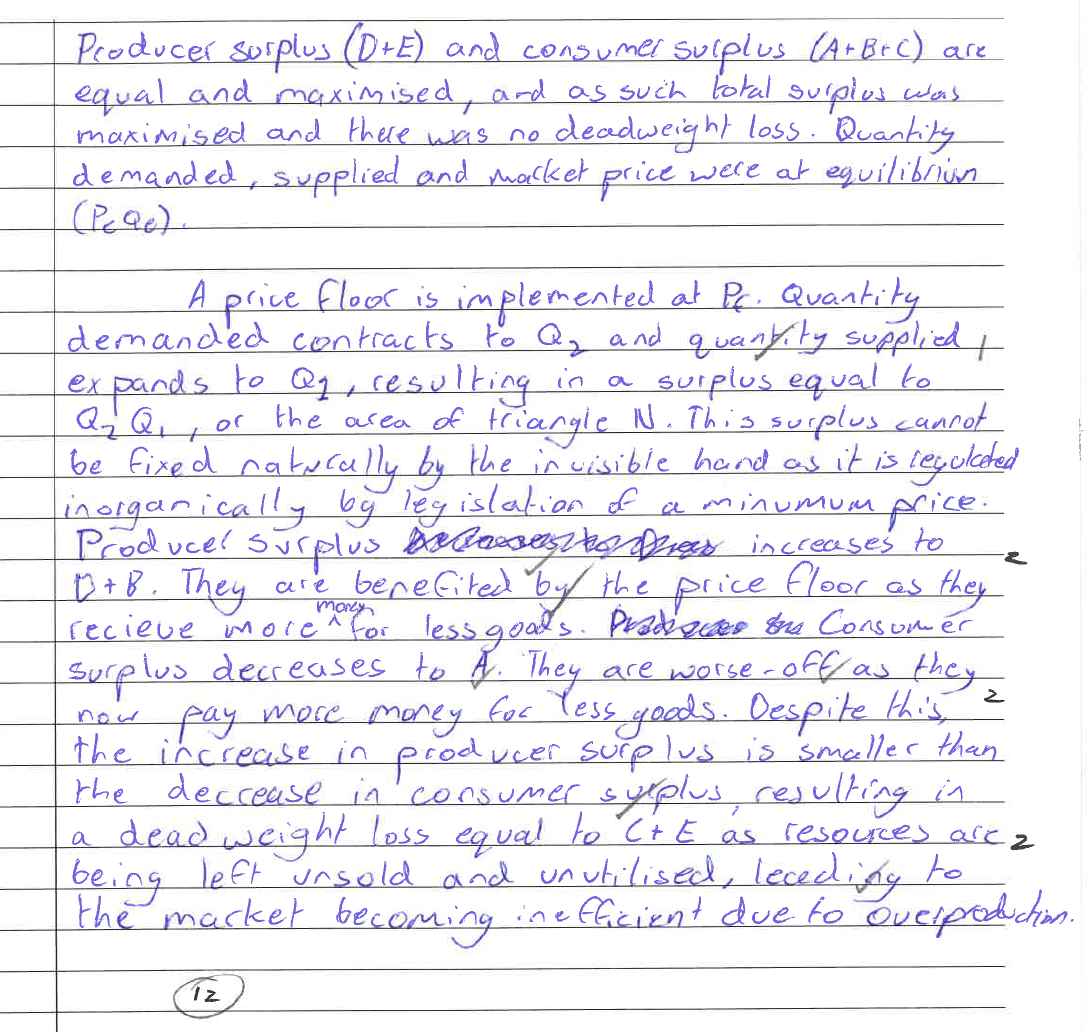 Producer surplus (D+E) and consumer surplus (A+B+C) are
equal and maximised, and as such total surplus was
maximised and there was no deadweight loss. Quantity
demanded, supplied and market price were at equilibrium
(PeQe).
A price floor is implemented at Pf. Quantity
demanded contracts to Q2 and quantity supplied 1
expands to Q1, resulting in a surplus equal to
Q2Q1, or the area of triangle N. This surplus cannot
be fixed naturally by the invisible hand as it is regulated
inorganically by legislation of a minumum price.
Producer surplus increases to 2
D+B. They are benefited by the price floor as they
recieve more money for less goods. Consumer
surplus decreases to A. They are worse-off as they
now pay more money for less goods. Despite this, 2
the increase in producer surplus is smaller than
the decrease in consumer surplus, resulting in
a deadweight loss equal to C+E as resources are 2
being left unsold and unutilised, leading to
the market becoming inefficient due to overproduction.
12